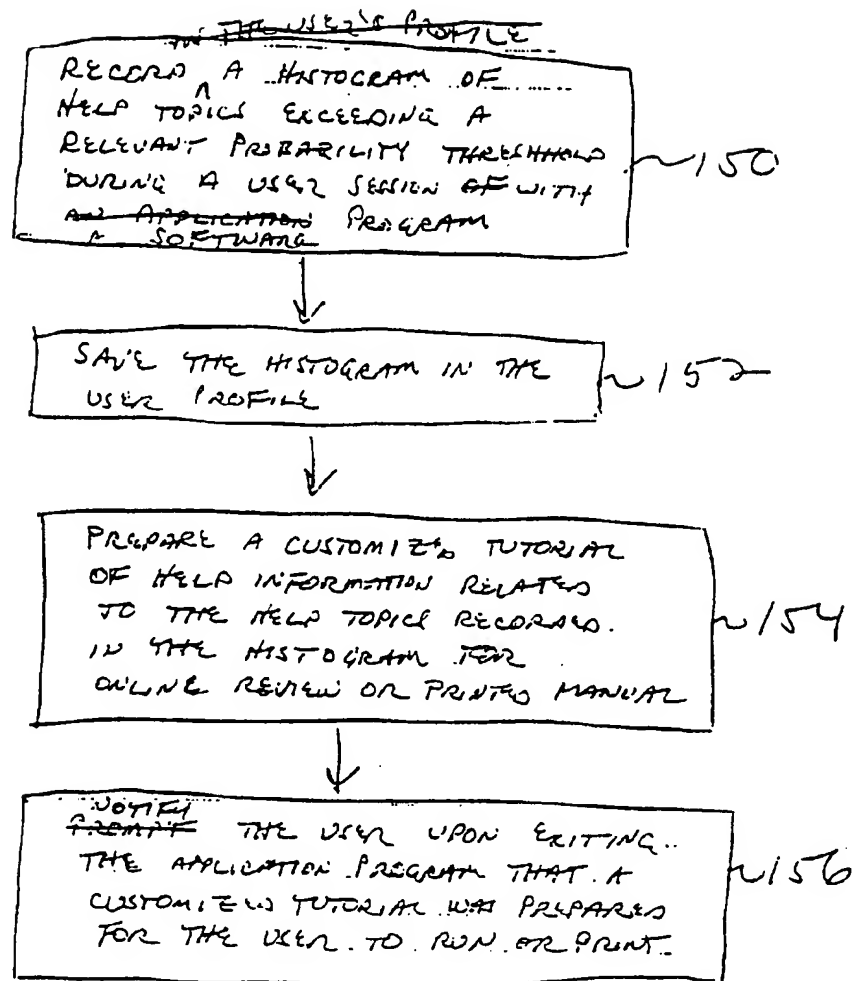 IN THE USER'S PROFILE
RECORD ^ A HISTOGRAM OF
HELP TOPICS EXCEEDING A
RELEVANT PROBABILITY THRESHHOLD
DURING A USER SESSION OF WITH
AN APPLICATION PROGRAM
A SOFTWARE
~150
SAVE THE HISTOGRAM IN THE
USER PROFILE
~152
PREPARE A CUSTOMIZED TUTORIAL
OF HELP INFORMATION RELATED
TO THE HELP TOPICS RECORDED.
IN THE HISTOGRAM FOR
ONLINE REVIEW OR PRINTED MANUAL
~154
NOTIFY
PROMPT THE USER UPON EXITING
THE APPLICATION PROGRAM THAT A
CUSTOMIZED TUTORIAL WAS PREPARED
FOR THE USER TO RUN OR PRINT.
~156